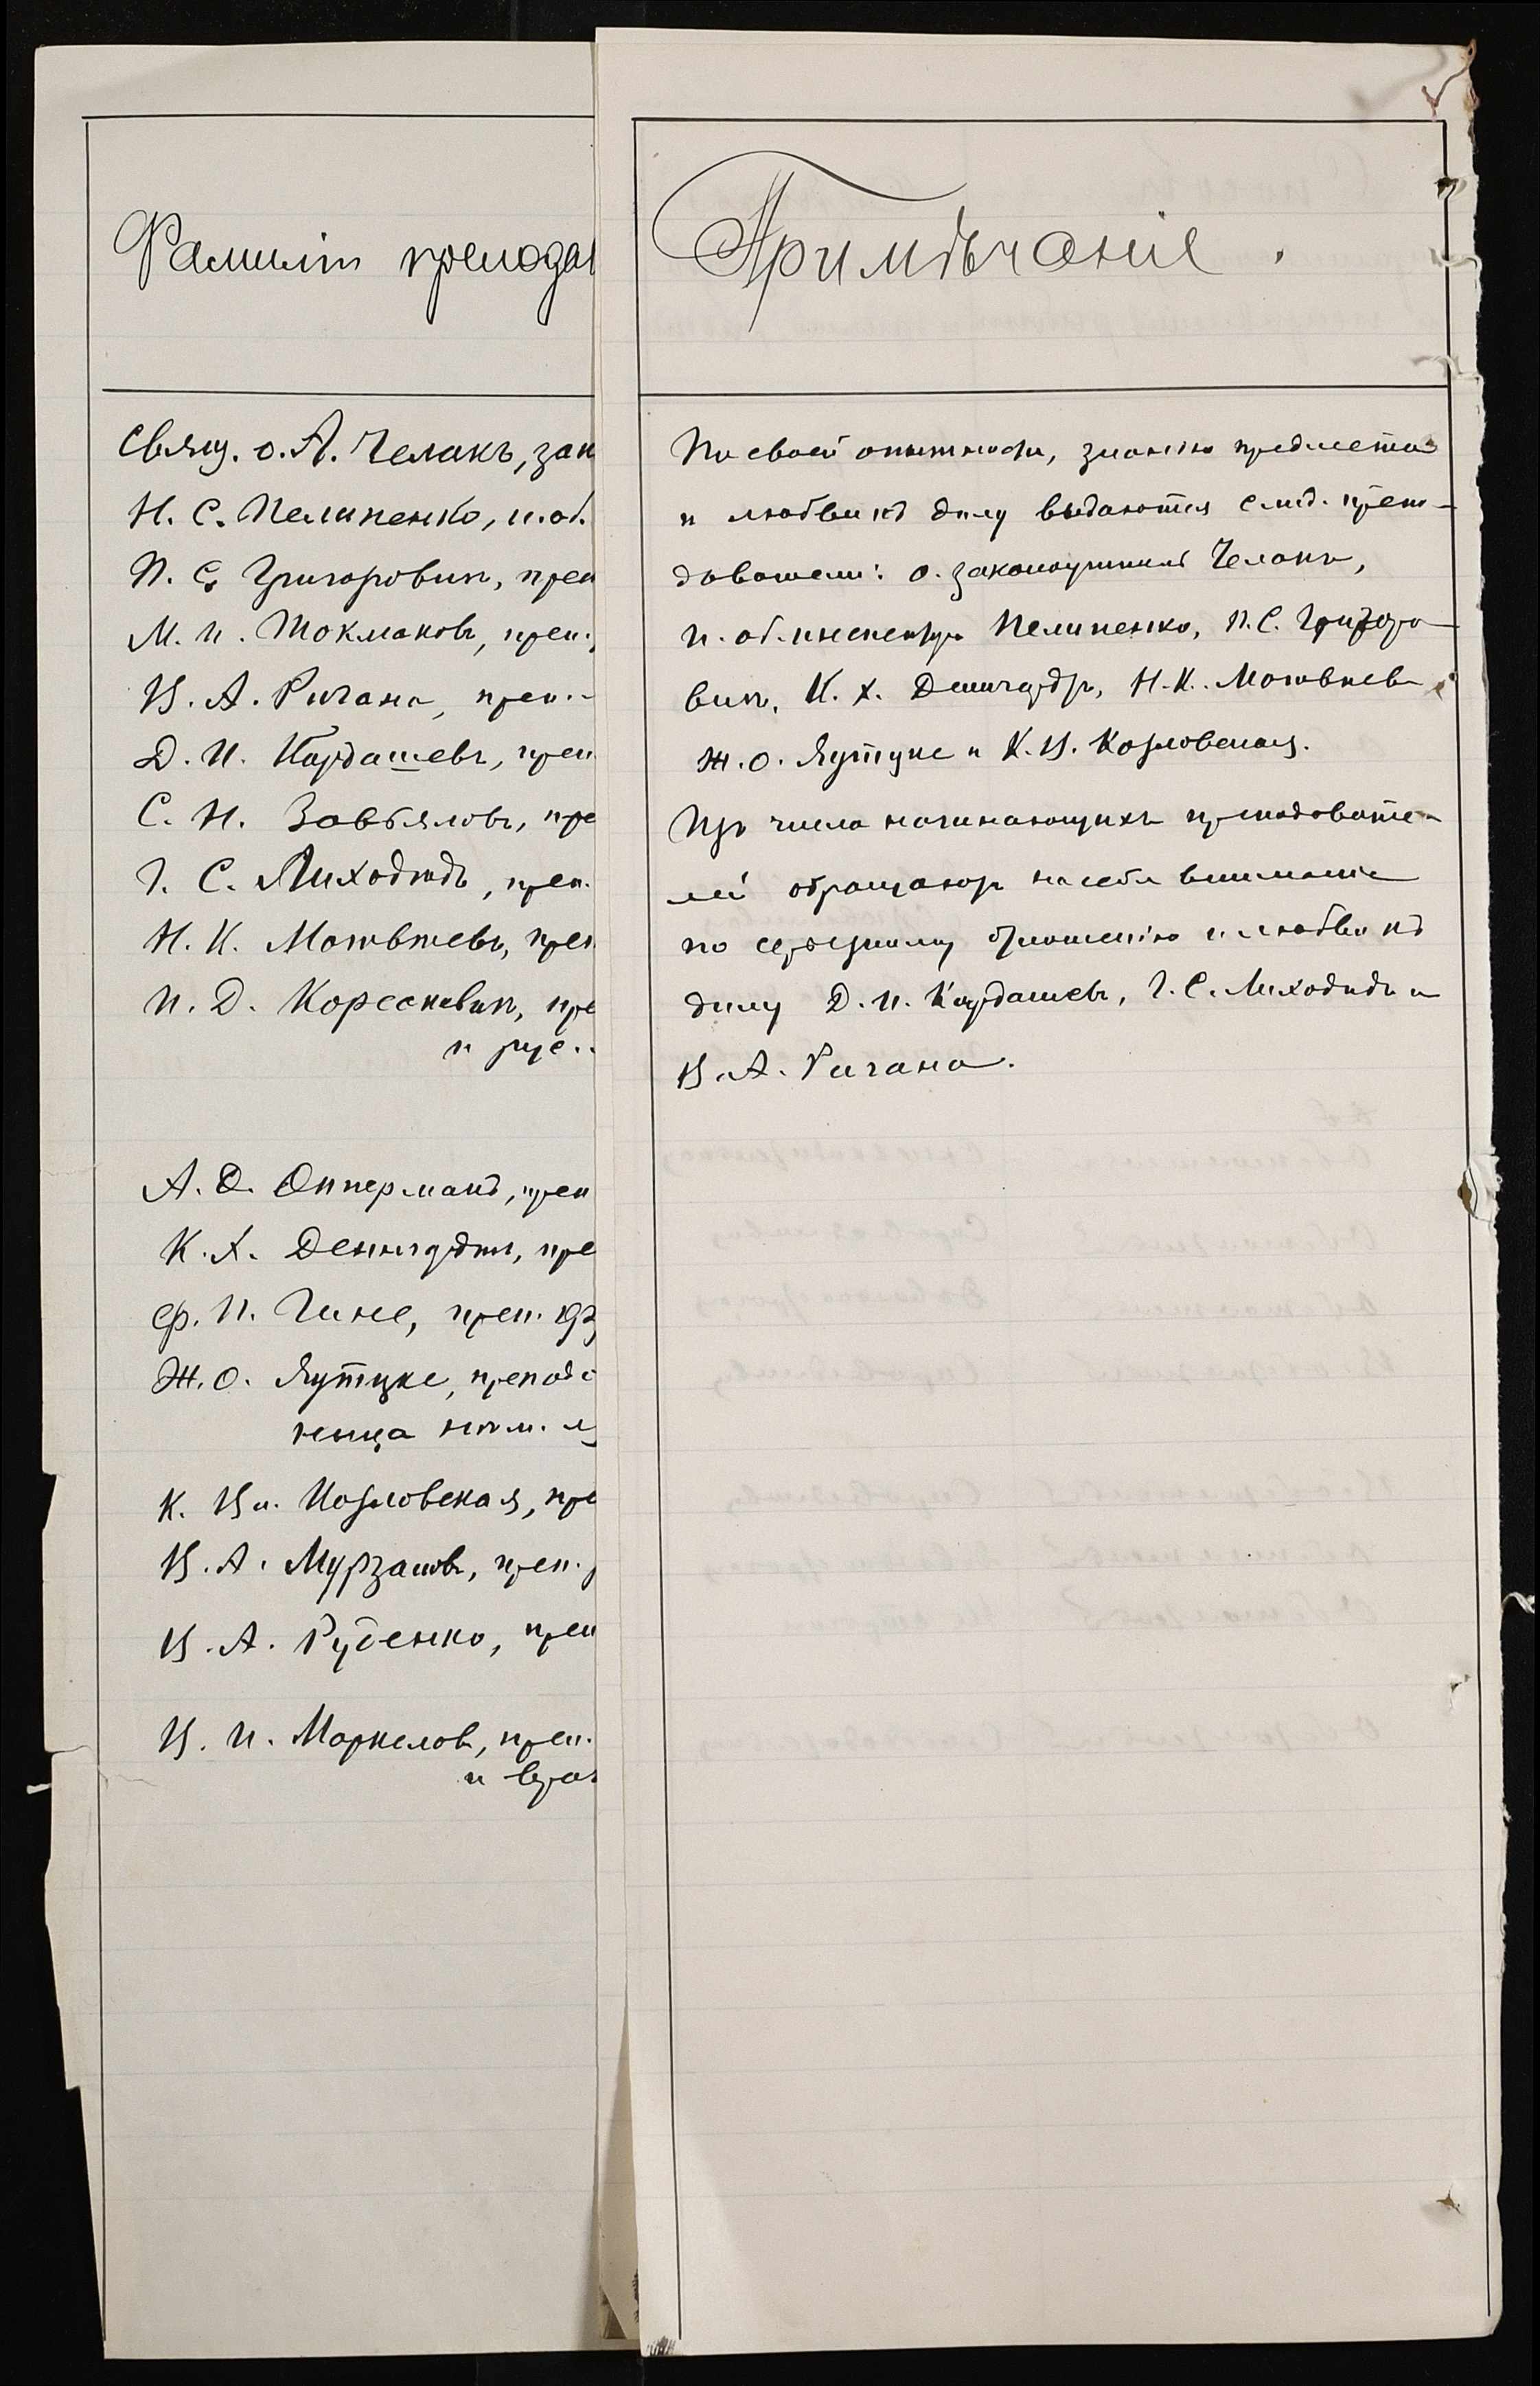 Фамиліи преподав
Свящ. о. А. Челакъ, зак
Н. С. Пелипенко, и. об.
П. С. Григоровичъ, преп
М. И. Токмаковъ, преп.
В. А. Ричана, преп.
Д. И. Кардашевъ, преп
С. Н. Завьяловъ, пре
Г. С. Лиходѣдъ, преп.
Н. К. Матвѣевъ, преп
И. Д. Корсакевичъ, пре
и рус.
А. Ѳ. Опперманъ, преп
К. Х. Демирдзи, пре
Ф. П. Гине, преп.
Ж. О. Яутцке, препода
ница нѣм. я
К. Ив. Козловская, пре
В. А. Мурзановъ, преп.
В. А. Руденко, преп
В. И. Маркелов, преп.
и врач
Примѣчаніе.
По своей опытности, знанію предмета
и любви къ дѣлу выдаются слѣд. препо-
даватели: о. законоучитель Челакъ,
и. об. инспектора Пелипенко, П. С. Григоро-
вичъ, К. Х. Н. К. Матвѣевъ
Ж. О. Яутцке и К. И. Козловская.
Изъ числа начинающихъ преподавате-
лей обращаютъ на себя вниманіе
по серьезному отношенію и любви къ
дѣлу Д. И. Кардашевъ, Г. С. Лиходѣдъ и
В. А. Ричана.